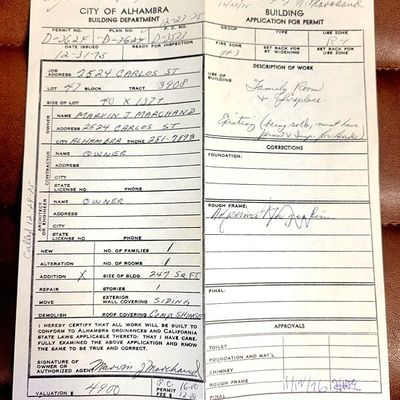 CITY OF ALHAMBRA
BUILDING DEPARTMENT
12-23-75
PERMIT NO.
D-3624
DATE ISSUED
12-31-75
READY FOR INSPECTION
JOB ADDRESS 2524 CARLOS ST
LOT 47 BLOCK TRACT 3908
SIZE OF LOT 40 X 137+
OWNER
NAME MARVIN J. MARCHAND
ADDRESS 2524 CARLOS ST
CITY ALHAMBRA PHONE 281-7893
CONTRACTOR
NAME OWNER
ADDRESS
CITY
STATE LICENSE NO. PHONE
ARCHITECT OR ENGINEER
NAME OWNER
ADDRESS
CITY
STATE LICENSE NO. PHONE
Called 12-29-75
NEW NO. OF FAMILIES 1
ALTERATION NO. OF ROOMS 1
ADDITION X SIZE OF BLDG. 247 SQ. FT.
REPAIR STORIES 1
MOVE EXTERIOR WALL COVERING SIDING
DEMOLISH ROOF COVERING COMP. SHINGLE
I HEREBY CERTIFY THAT ALL WORK WILL BE BUILT TO
CONFORM TO ALHAMBRA ORDINANCES AND CALIFORNIA
STATE LAWS APPLICABLE THERETO. THAT I HAVE CARE-
FULLY EXAMINED THE ABOVE APPLICATION AND KNOW
THE SAME TO BE TRUE AND CORRECT.
SIGNATURE OF OWNER OR AUTHORIZED AGENT Marvin J Marchand
VALUATION $ 4900
P.C. 16.00
PERMIT FEE $
BUILDING
APPLICATION FOR PERMIT
TYPE
USE ZONE
R-1
FIRE ZONE
#3
SET BACK FOR ST WIDENING
SET BACK
DESCRIPTION OF WORK
USE OF BUILDING
Family Room
& Fireplace
CORRECTIONS
FOUNDATION:
ROUGH FRAME:
FINAL:
APPROVALS
TOILET
FOUNDATION and MAT'L
CHIMNEY
ROUGH FRAME
FINAL